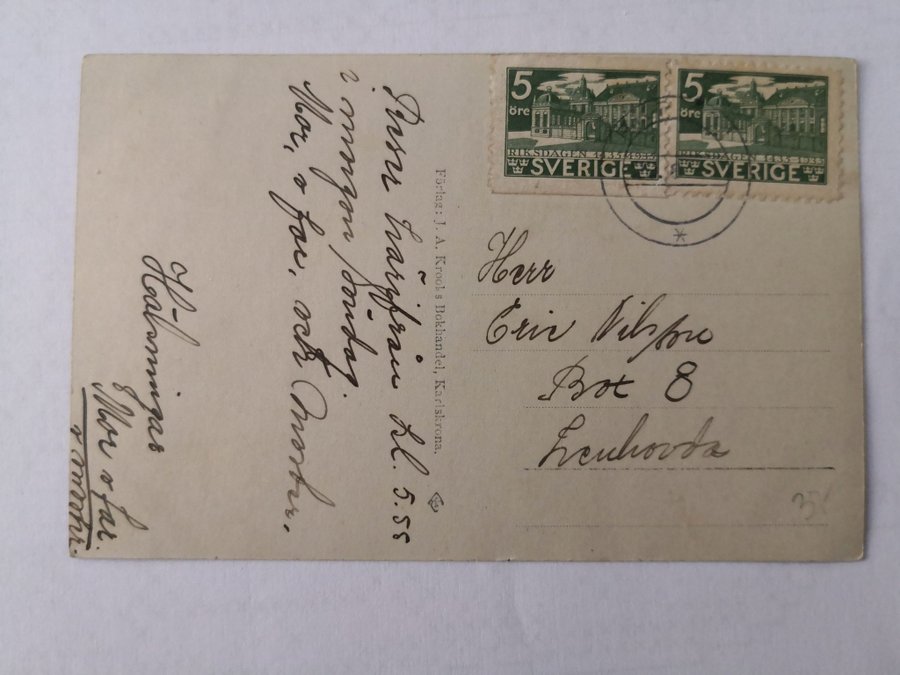 Reser härifrån kl. 5.55
i morgon, söndag.
Mor, o far, och Moster.
Hälsningar
Mor o far.
o moster.
Förlag: J. A. Krooks Bokhandel, Karlskrona.
5
öre
RIKSDAGEN 1435-1935
SVERIGE
5
öre
RIKSDAGEN 1435-1935
SVERIGE
Herr
Eric Nilsson
Box 8
Lenhovda